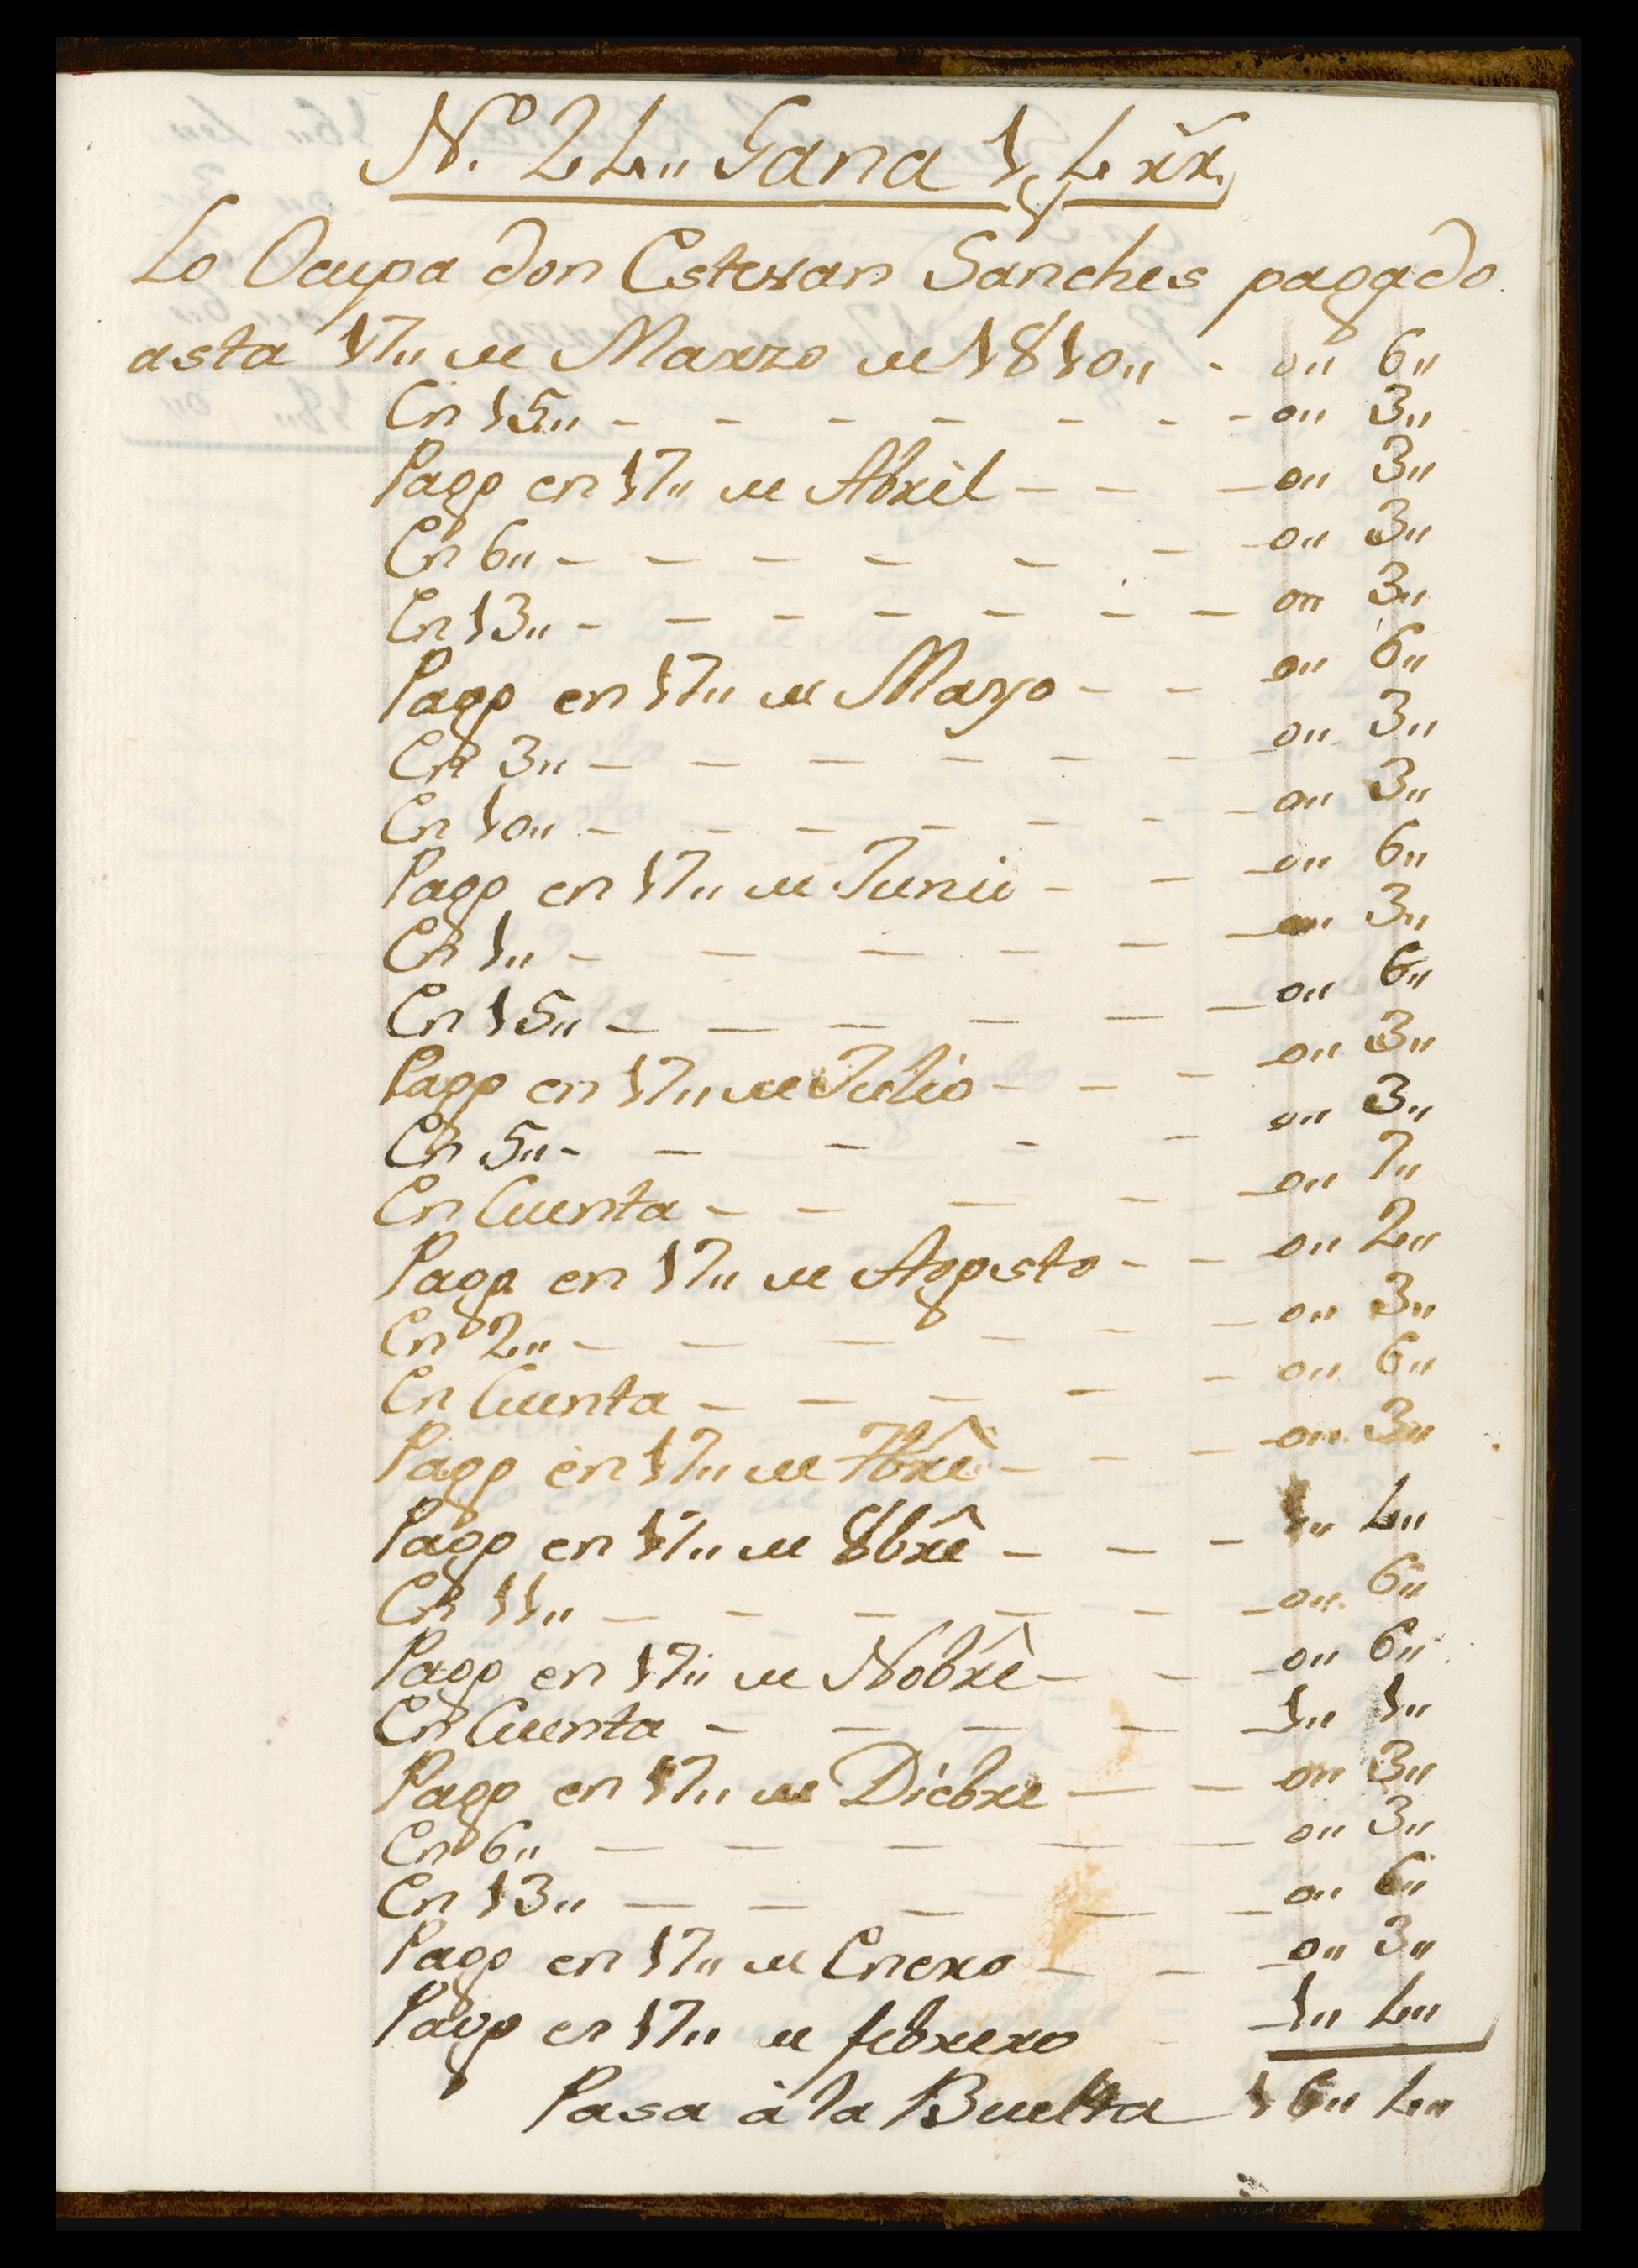 N.º 24,, Gana 1 p 4 rr.
Lo Ocupa don Estevan Sanches pagado
asta 17,, de Marzo de 1810,, - 0,, 6,,
En 15,, - - - - - - - 0,, 3,,
Pago en 17,, de Abril - - - 0,, 3,,
En 6,, - - - - - - - 0,, 3,,
En 13,, - - - - - - - 0,, 3,,
Pago en 17,, de Mayo - - 0,, 6,,
En 3,, - - - - - - - 0,, 3,,
En 10,, - - - - - - - 0,, 3,,
Pago en 17,, de Junio - - - 0,, 6,,
En 1,, - - - - - - 0,, 3,,
En 15,, - - - - - - 0,, 6,,
Pago en 17,, de Julio - - - 0,, 3,,
En 5,, - - - - - 0,, 3,,
En Cuenta - - - - - 0,, 7,,
Pago en 17,, de Agosto - - 0,, 2,,
En 2,, - - - - - - 0,, 3,,
En Cuenta - - - - - 0,, 6,,
Pago en 17,, de 7bre - - - 0,, 3,,
Pago en 17,, de 8bre - - - 1,, 4,,
En 11,, - - - - - - 0,, 6,,
Pago en 17,, de Nobre - - - 0,, 6,,
En Cuenta - - - - - 1,, 1,,
Pago en 17,, de Diebre - - 0,, 3,,
En 6,, - - - - - 0,, 3,,
En 13,, - - - - - 0,, 6,,
Pago en 17,, de Enero - - - 0,, 3,,
Pago en 17,, de febrero - 1,, 4,,
Pasa à la Buelta 16,, 4,,